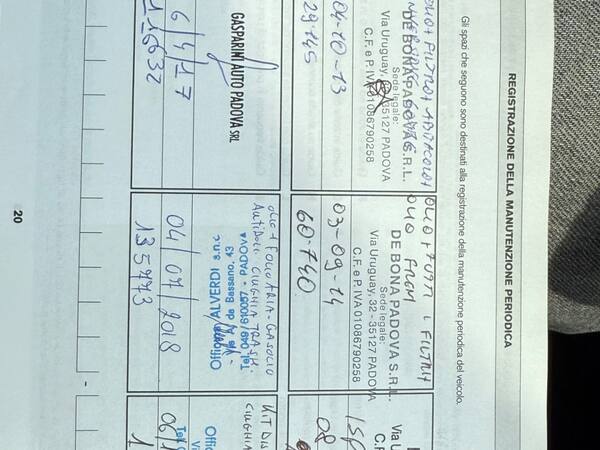 REGISTRAZIONE DELLA MANUTENZIONE PERIODICA
Gli spazi che seguono sono destinati alla registrazione della manutenzione periodica del veicolo.
OLIO + FILTRO + ANTIACOLO +
DE BONA PADOVA S.R.L.
Sede legale:
Via Uruguay, 32-35127 PADOVA
C.F. e P. IVA 01086790258
04-10-13
29.145
OLIO + TUTTI I FILTRI +
OLIO FRENI
DE BONA PADOVA S.R.L.
Sede legale:
Via Uruguay, 32 - 35127 PADOVA
C.F. e P. IVA 01086790258
03-09-14
60.740
Via U
C.F.
08
GASPARINI AUTO PADOVA SRL
6/4/17
116632
OLIO + FOLIO ARIA-GASOLIO
CINGHIA TRASM.
Officina ALVERDI s.n.c.
Via M. da Bassano, 43
Tel. 049/610057 - PADOVA
04/07/2018
135773
KIT DIS
CINGHIA
Offic
Vi
Tel
06/
1
20